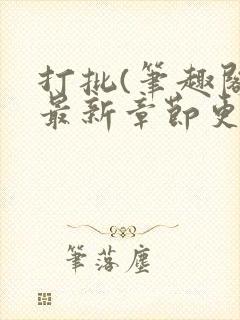 打批(筆趣閣
最新章節更
筆落塵